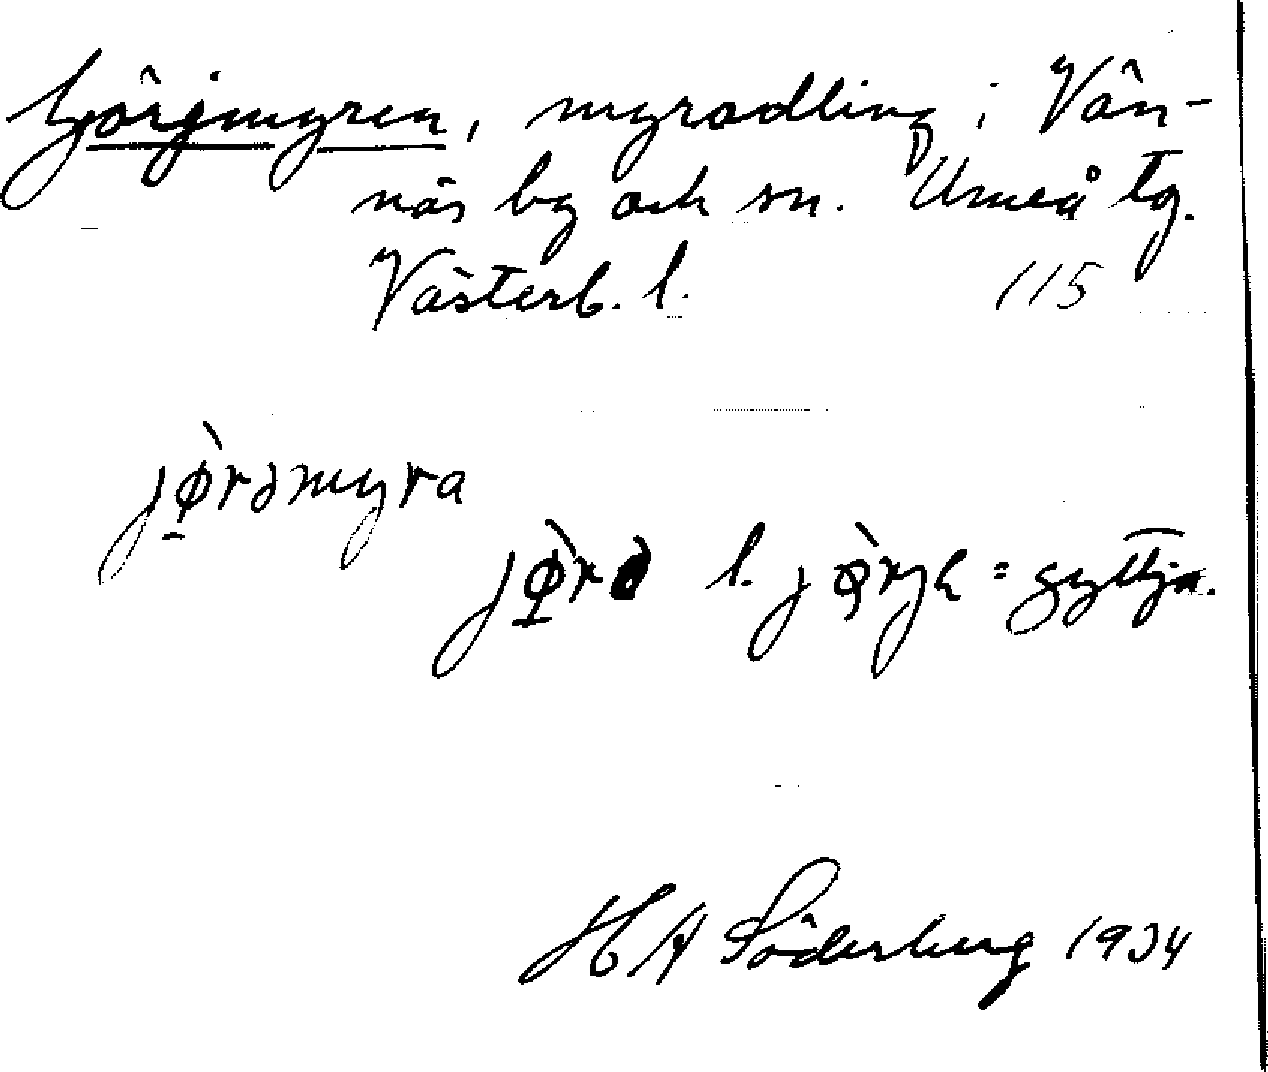 Görjmyren, myrodling i Vän-
näs by och sn. Umeå tg.
Västerb. l. 115
jø̀rəmyra
jø̀rə l. jø̀rjh = gyttja.
H A Söderberg 1934